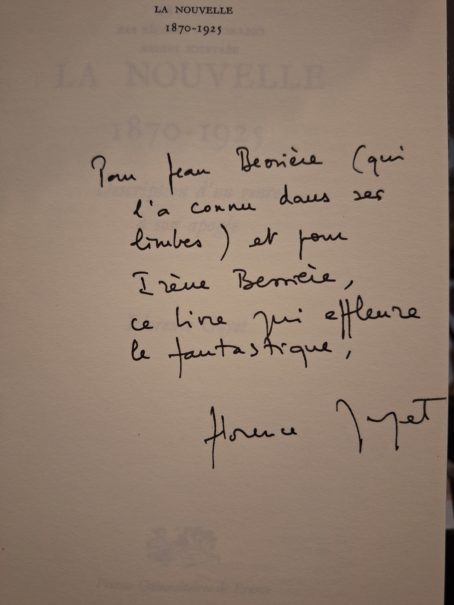 LA NOUVELLE
1870-1925
LA NOUVELLE
1870-1925
Pour Jean Bessière (qui
l'a connu dans ses
limbes) et pour
Irène Bessière,
ce livre qui effleure
le fantastique,
Florence Goyet
Presses Universitaires de France